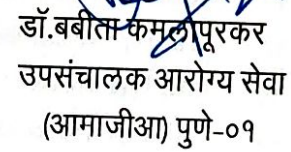 डॉ.बबीता कमलापूरकर
उपसंचालक आरोग्य सेवा
(आमाजीआ) पुणे-०१